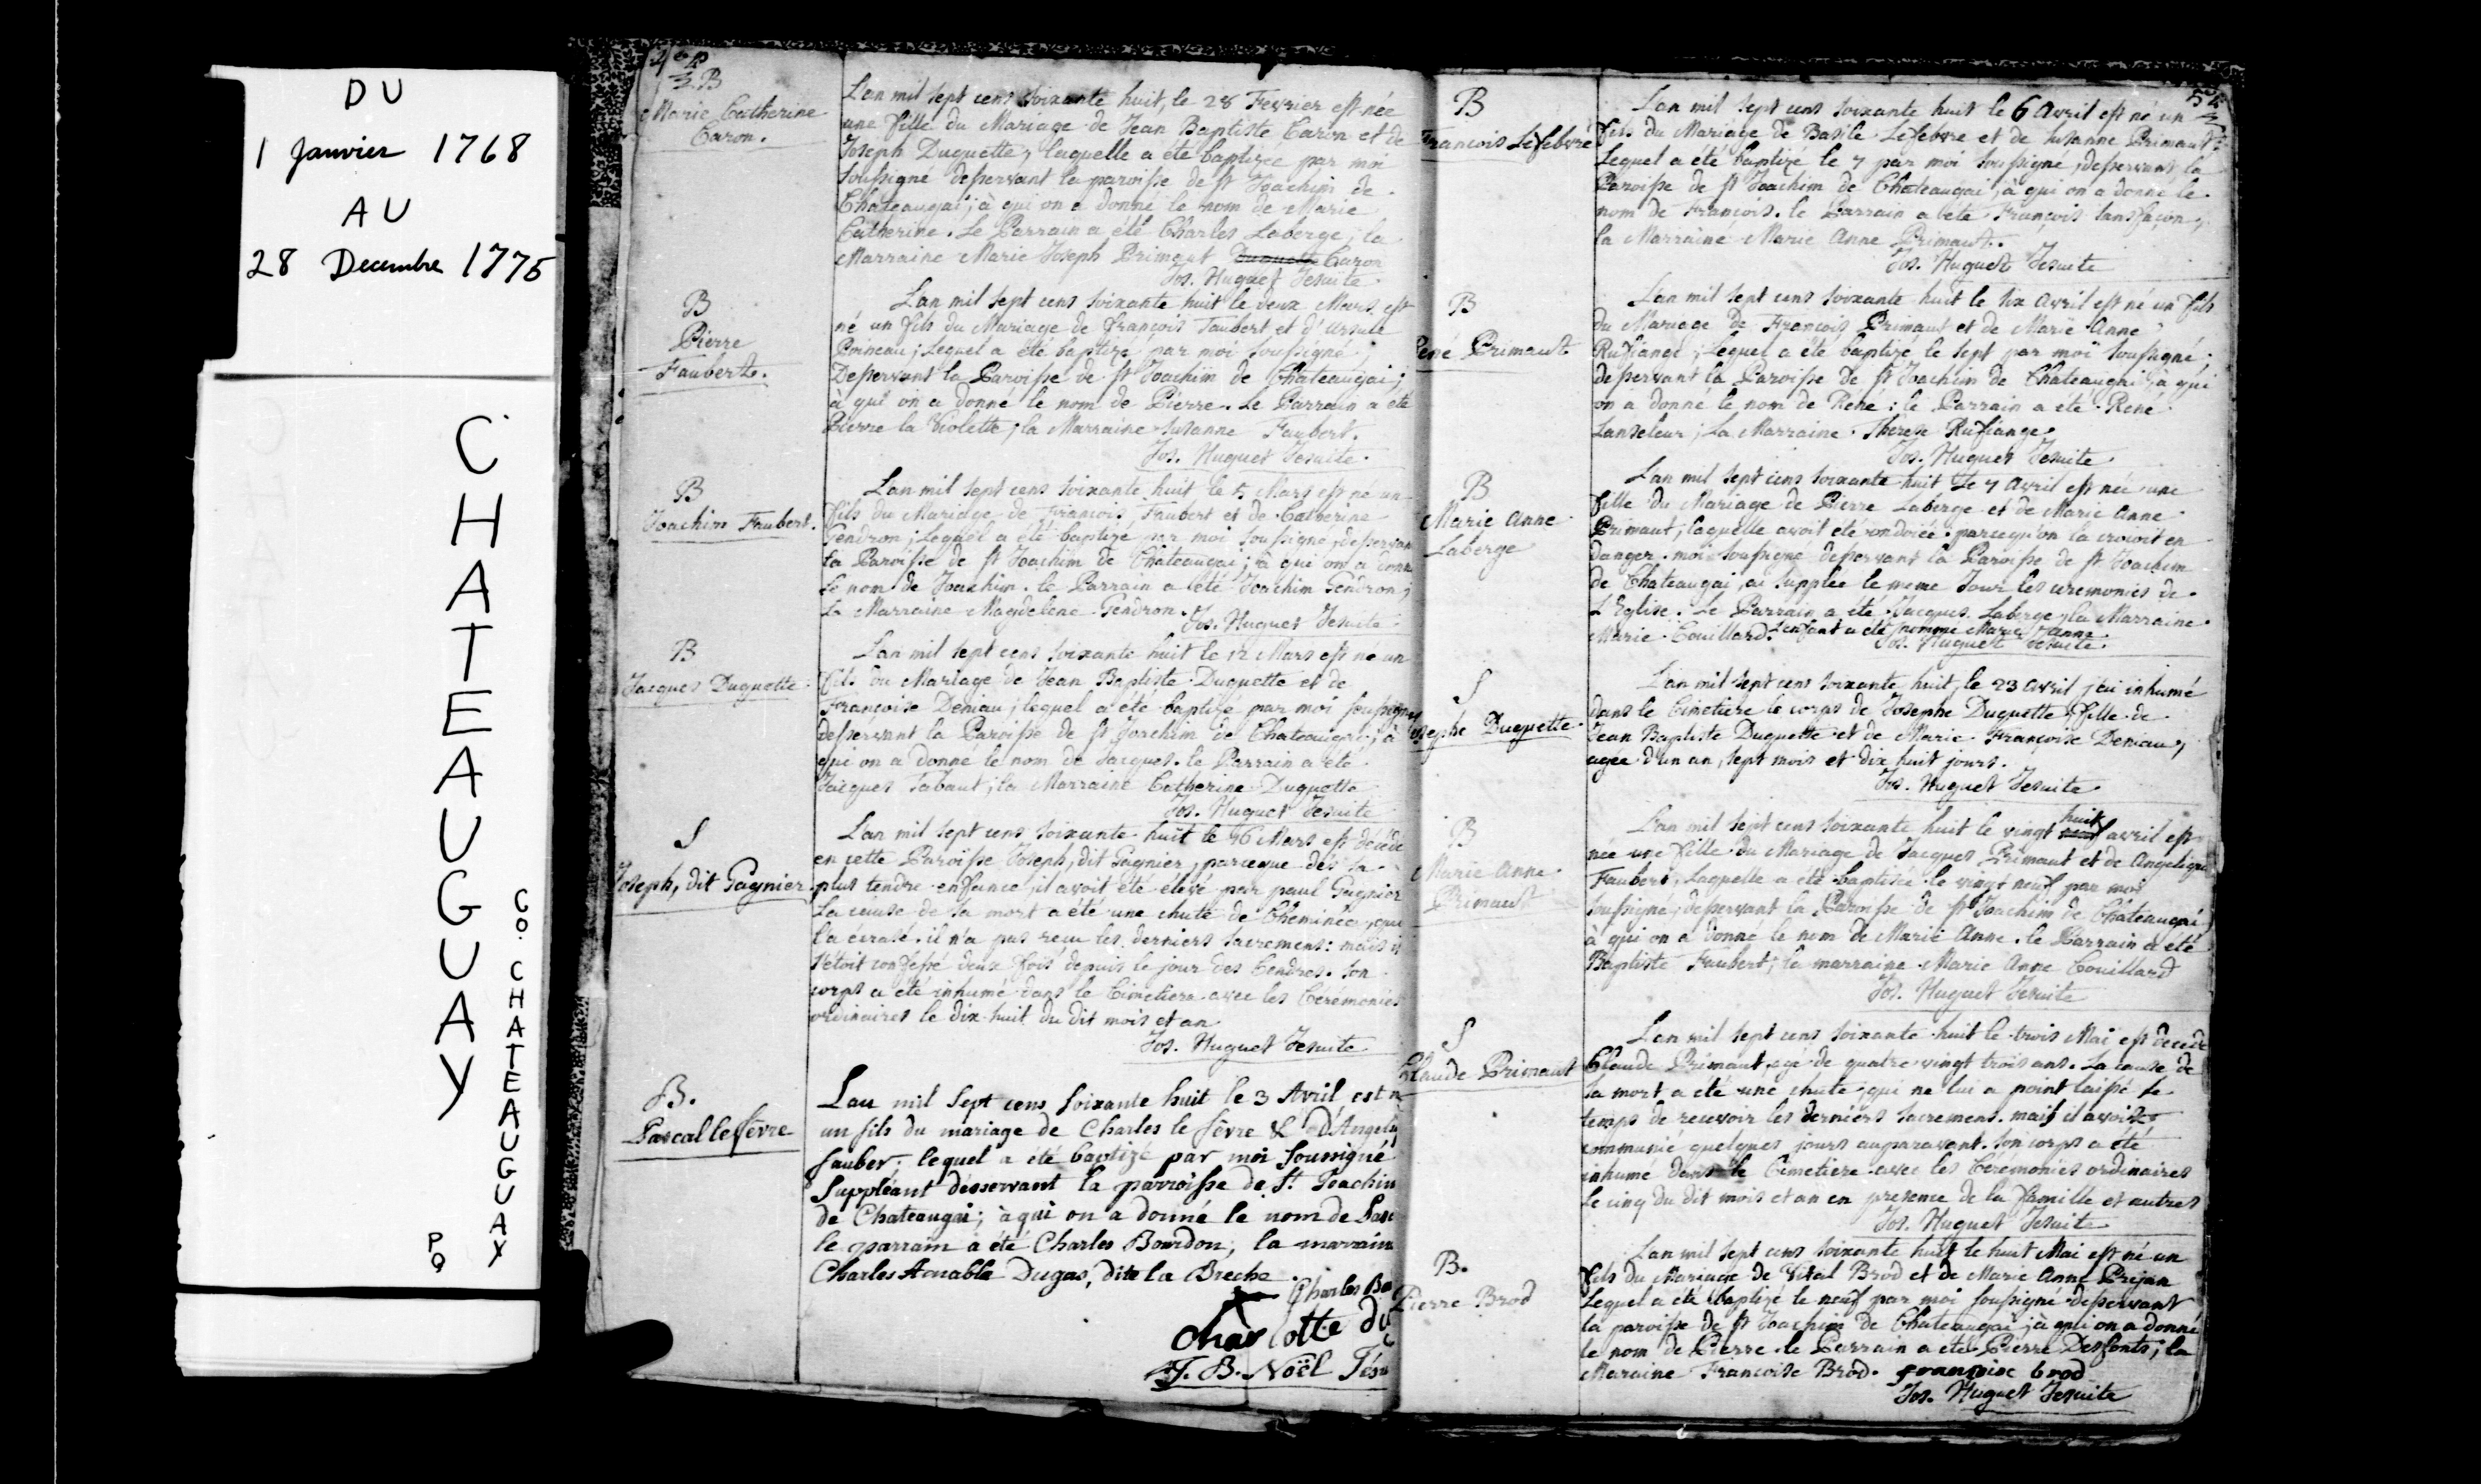 DU
1 Janvier 1768
AU
28 Decembre 1775
CHATEAUGUAY
CO. CHATEAUGUAY
PQ
B
Marie Catherine
Caron.
L'an mil sept cens soixante huit, le 28 Fevrier est née
une fille du Mariage de Jean Baptiste Caron et de
Joseph Duquette, laquelle a été baptizée par moi
soussigné desservant la paroisse de st Joachim de
Chateaugai, à qui on a donné le nom de Marie
Catherine. Le Parrain a été Charles Laberge, la
Marraine Marie Joseph Primaut Caron
Jos. Huguet Jesuite
B
Pierre
Faubert.
L'an mil sept cens soixante huit le deux Mars est
né un fils du Mariage de françois Faubert et d'ursule
Poineau; Lequel a été baptizé par moi soussigné,
Desservant la Paroisse de st Joachim de Chateaugai;
à qui on a donné le nom de Pierre. Le Parrain a été
Pierre la Violette; la Marraine Susanne Faubert.
Jos. Huguet Jesuite.
B
Joachim Faubert.
L'an mil sept cens soixante huit le 5 Mars est né un
fils du Mariage de francois Faubert et de Catherine
Gendron; Lequel a été baptizé par moi soussigné, desservan
la Paroisse de st Joachim de Chateaugai; à qui on a donn
le nom de Joachim. le Parrain a été Joachim Gendron;
La Marraine Magdelene Gendron.
Jos. Huguet Jesuite
B
Jacques Duquette
L'an mil sept cens soixante huit le 12 Mars est né un
fils du Mariage de Jean Baptiste Duquette et de
Françoise Deniau; lequel a été baptizé par moi soussigné
desservant la Paroisse de st Joachim de Chateaugai; à
qui on a donné le nom de Jacques. le Parrain a été
Jacques Tabaut; la Marraine Catherine Duquette
Jos. Huguet Jesuite
S
Joseph, dit Gagnier
L'an mil sept cens soixante huit le 16 Mars est décédé
en cette Paroisse Joseph, dit Gagnier, parceque dès sa
plus tendre enfance, il avoit été élevé par paul Gagnier
La cause de sa mort a été une chute de Cheminée, qui
l'a écrasé. il n'a pas reçu les derniers sacremens: mais il
s'étoit confessé deux fois depuis le jour des Cendres. son
corps a été inhumé dans le Cimetiere avec les Cérémonies
ordinaires le dix huit du dit mois et an
Jos. Huguet Jesuite
B.
Pascal le fèvre
L'an mil Sept cens soixante huit le 3 Avril est n
un fils du mariage de Charles le fèvre & D'Angely
fauber; lequel a été baptizé par moi soussigné
Suppléant désservant la parroisse de St. Joachim
de Chateaugai; à qui on a donné le nom de Pasc
le parrain a été Charles Bourdon; la marrain
Charles Amable Dugas, dite la Breche
Charles Bo
Charlotte Du
J. B. Noël Jésu
54
B
Francois Lefebvre
L'an mil sept cens soixante huit le 6 Avril est né un
fils du Mariage de Basile Lefebvre et de Susanne Primaut
Lequel a été baptizé le 7 par moi soussigné, desservant la
Paroisse de st Joachim de Chateaugai, à qui on a donné le
nom de François. le Parrain a été François Sansfaçon,
la Marraine Marie Anne Primaut.
Jos. Huguet Jesuite
B
René Primaut
L'an mil sept cens soixante huit le six Avril est né un fils
du Mariage de François Primaut et de Marie Anne
Rufiange; Lequel a été baptizé le sept par moi soussigné,
desservant la Paroisse de st Joachim de Chateaugai, à qui
on a donné le nom de René; le Parrain a été René
Lanseleur; la Marraine Therese Rufiange
Jos. Huguet Jesuite
B
Marie Anne
Laberge
L'an mil sept cens soixante huit Le 7 Avril est née une
fille du Mariage de Pierre Laberge et de Marie Anne
Primaut, laquelle avoit été ondoiée parcequ'on la croioit en
danger. moi soussigné desservant la Paroisse de st Joachim
de Chateaugai, ai supplée le meme Jour les ceremonies de
L'Eglise. Le Parrain a été Jacques Laberge, la Marraine
Marie Couillard. L'enfant a été nommé Marie Anne.
Jos. Huguet Jesuite.
S
Josephe Duquette
L'an mil sept cens soixante huit, le 23 avril j'ai inhumé
dans le Cimetiere le corps de Josephe Duquette, fille de
Jean Baptiste Duquette et de Marie Françoise Deniau,
agée d'un an, sept mois et dix huit jours.
Jos. Huguet Jesuite
B
Marie Anne
Primaut
L'an mil sept cens soixante huit le vingt huit avril est
née une fille du Mariage de Jacques Primaut et de Angelique
Faubert, Laquelle a été baptisée le vingt neuf par moi
soussigné, desservant la Paroisse de st Joachim de Chateaugai,
à qui on a donné le nom de Marie Anne. le Parrain a été
Baptiste Faubert; la marraine Marie Anne Couillard
Jos. Huguet Jesuite
S
Claude Primaut
L'an mil sept cens soixante huit le trois Mai est decedé
Claude Primaut, agé de quatre vingt trois ans. La cause de
sa mort a été une chute, qui ne lui a point laissé le
temps de recevoir les derniers sacremens. mais il avoit
communié quelques jours auparavant. son corps a été
inhumé dans le Cimetiere avec les Cérémonies ordinaires
le cinq du dit mois et an en presence de la famille et autres
Jos. Huguet Jesuite
B.
Pierre Brod
L'an mil sept cens soixante huit le huit Mai est né un
fils du Mariage de Vital Brod et de Marie Anne Prejan
Lequel a été baptizé le neuf par moi soussigné desservant
la paroisse de st Joachim de Chateaugai, à qui on a donné
le nom de Pierre. le Parrain a été Pierre Desfonts; la
Maraine Francoise Brod. françoise brod
Jos. Huguet Jesuite